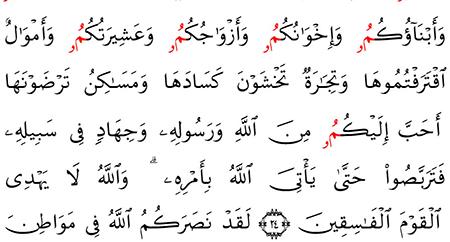 وَأَبْنَآؤُكُمُۥ وَإِخْوَٰنُكُمُۥ وَأَزْوَٰجُكُمُۥ وَعَشِيرَتُكُمُۥ وَأَمْوَٰلٌ
ٱقْتَرَفْتُمُوهَا وَتِجَٰرَةٌ تَخْشَوْنَ كَسَادَهَا وَمَسَٰكِنُ تَرْضَوْنَهَا
أَحَبَّ إِلَيْكُمُۥ مِنَ ٱللَّهِ وَرَسُولِهِۦ وَجِهَادٍ فِى سَبِيلِهِۦ
فَتَرَبَّصُوا۟ حَتَّىٰ يَأْتِىَ ٱللَّهُ بِأَمْرِهِۦ ۗ وَٱللَّهُ لَا يَهْدِى
ٱلْقَوْمَ ٱلْفَٰسِقِينَ ﴿٢٤﴾ لَقَدْ نَصَرَكُمُ ٱللَّهُ فِى مَوَاطِنَ